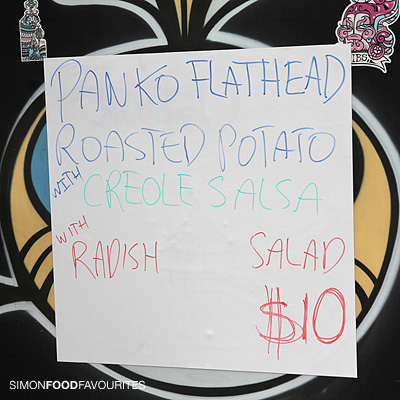 PANKO FLATHEAD
ROASTED POTATO
WITH CREOLE SALSA
WITH
RADISH SALAD
$10
SIMONFOODFAVOURITES